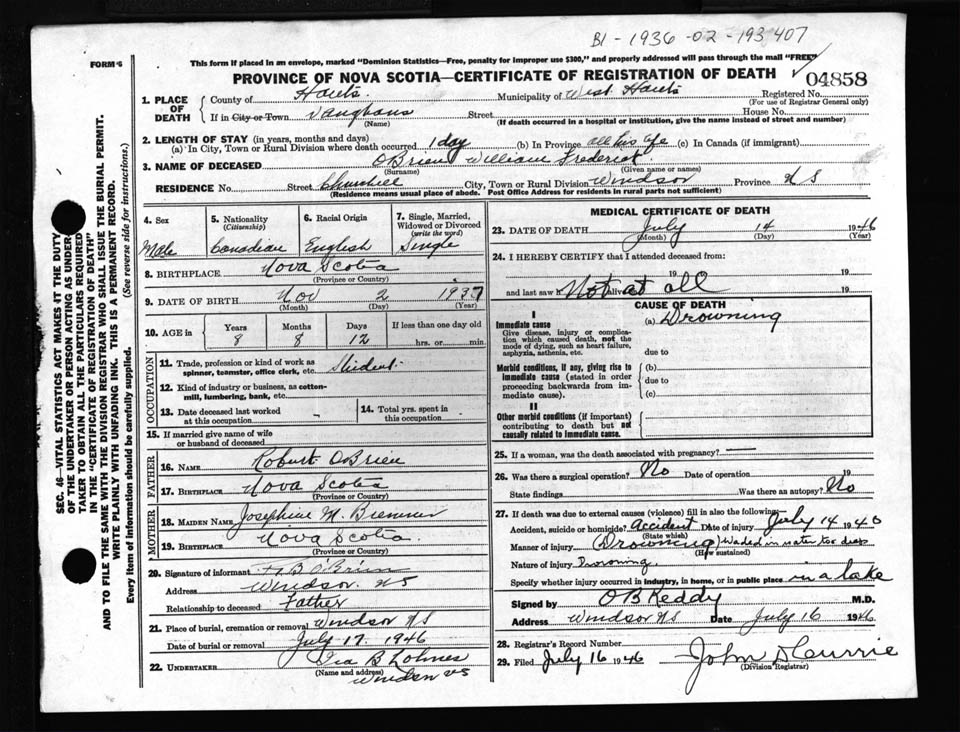 B1-1936-02-193407
FORM 6
This form if placed in an envelope, marked "Dominion Statistics—Free, penalty for improper use $300," and properly addressed will pass through the mail "FREE"
PROVINCE OF NOVA SCOTIA—CERTIFICATE OF REGISTRATION OF DEATH
04858
1. PLACE OF DEATH
County of Hants Municipality of West Hants Registered No.
(For use of Registrar General only)
If in City or Town Vaughans Street House No.
(Name) (If death occurred in a hospital or institution, give the name instead of street and number)
2. LENGTH OF STAY (in years, months and days)
(a) In City, Town or Rural Division where death occurred 1 day (b) In Province all his life (c) In Canada (if immigrant)
3. NAME OF DECEASED OBrien William Frederick
(Surname) (Given name or names)
RESIDENCE No. Street City, Town or Rural Division Windsor Province N S
(Residence means usual place of abode. Post Office Address for residents in rural parts not sufficient)
4. Sex
Male
5. Nationality
(Citizenship)
Canadian
6. Racial Origin
English
7. Single, Married,
Widowed or Divorced
(write the word)
Single
8. BIRTHPLACE Nova Scotia
(Province or Country)
9. DATE OF BIRTH Nov 2 1937
(Month) (Day) (Year)
10. AGE in
Years Months Days If less than one day old
8 8 12 hrs. or min.
OCCUPATION
11. Trade, profession or kind of work as
spinner, teamster, office clerk, etc. Student
12. Kind of industry or business, as cotton-
mill, lumbering, bank, etc.
13. Date deceased last worked
at this occupation
14. Total yrs. spent in
this occupation
15. If married give name of wife
or husband of deceased
FATHER
16. NAME Robert OBrien
17. BIRTHPLACE Nova Scotia
(Province or Country)
MOTHER
18. MAIDEN NAME Josephine M.
19. BIRTHPLACE Nova Scotia.
(Province or Country)
20. Signature of informant B O'Brien
Address Windsor. NS
Relationship to deceased Father
21. Place of burial, cremation or removal Windsor NS
Date of burial or removal July 17. 1946
22. UNDERTAKER Ira B Lohnes
(Name and address) NS
MEDICAL CERTIFICATE OF DEATH
23. DATE OF DEATH July 14 1946
(Month) (Day) (Year)
24. I HEREBY CERTIFY that I attended deceased from:
19 to 19
and last saw h alive Not at all 19
CAUSE OF DEATH
I
Immediate cause
Give disease, injury or complica-
tion which caused death, not the
mode of dying, such as heart failure,
asphyxia, asthenia, etc.
(a) Drowning
due to
Morbid conditions, if any, giving rise to
immediate cause (stated in order
proceeding backwards from im-
mediate cause).
(b)
due to
(c)
II
Other morbid conditions (if important)
contributing to death but not
causally related to immediate cause.
25. If a woman, was the death associated with pregnancy?
26. Was there a surgical operation? No Date of operation 19
State findings Was there an autopsy? No
27. If death was due to external causes (violence) fill in also the following:
Accident, suicide or homicide? Accident Date of injury July 14 1946
(State which)
Manner of injury (Drowning) Waded in water too deep
(How sustained)
Nature of injury Drowning.
Specify whether injury occurred in industry, in home, or in public place in a lake
Signed by O B Reddy M.D.
Address Windsor NS Date July 16 1946
28. Registrar's Record Number
29. Filed July 16 1946 John D Currie
(Division Registrar)
SEC. 46—VITAL STATISTICS ACT MAKES IT THE DUTY
OF THE UNDERTAKER OR PERSON ACTING AS UNDER-
TAKER TO OBTAIN ALL THE PARTICULARS REQUIRED
IN THE "CERTIFICATE OF REGISTRATION OF DEATH"
AND TO FILE THE SAME WITH THE DIVISION REGISTRAR WHO SHALL ISSUE THE BURIAL PERMIT.
WRITE PLAINLY WITH UNFADING INK. THIS IS A PERMANENT RECORD.
Every item of information should be carefully supplied. (See reverse side for instructions.)